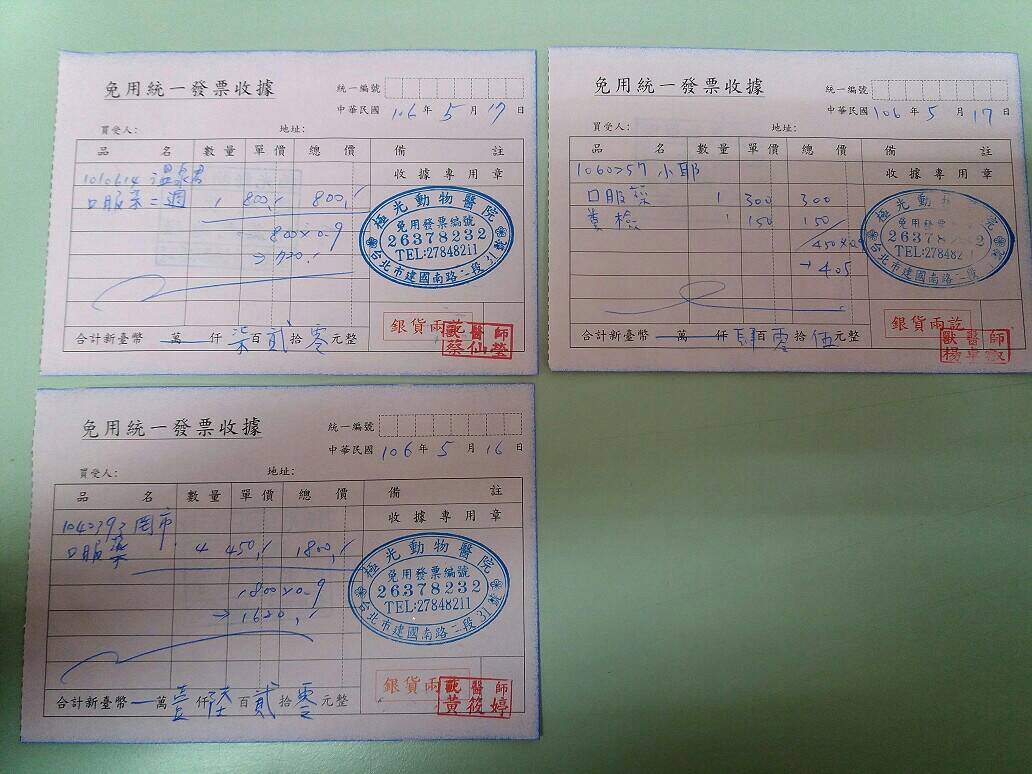 免用統一發票收據
統一編號
中華民國 106 年 5 月 17 日
買受人: 地址:
品 名 數量 單價 總價 備 註
1010614 溫泉君 收據專用章
口服藥二週 1 800 800
800×0.9
→720
極光動物醫院
免用發票編號
26378232
TEL:27848211
台北市建國南路二段31號
銀貨兩訖
合計新臺幣 萬 仟 柒 百 貳 拾 零 元整
獸醫師
蔡仙瑩
免用統一發票收據
統一編號
中華民國 106 年 5 月 17 日
買受人: 地址:
品 名 數量 單價 總價 備 註
1060257 小耶 收據專用章
口服藥 1 300 300
糞檢 1 150 150
450×0.9
→405
極光動物
免用發票編號
263782
TEL:278482
台北市建國南路二段31號
銀貨兩訖
合計新臺幣 萬 仟 肆 百 零 拾 伍 元整
獸醫師
楊
免用統一發票收據
統一編號
中華民國 106 年 5 月 16 日
買受人: 地址:
品 名 數量 單價 總價 備 註
收據專用章
口服藥 4 450 1800
1800×0.9
→1620
極光動物醫院
免用發票編號
26378232
TEL:27848211
台北市建國南路二段31號
銀貨兩訖
合計新臺幣 萬 壹 仟 陸 百 貳 拾 零 元整
獸醫師
黃筱婷